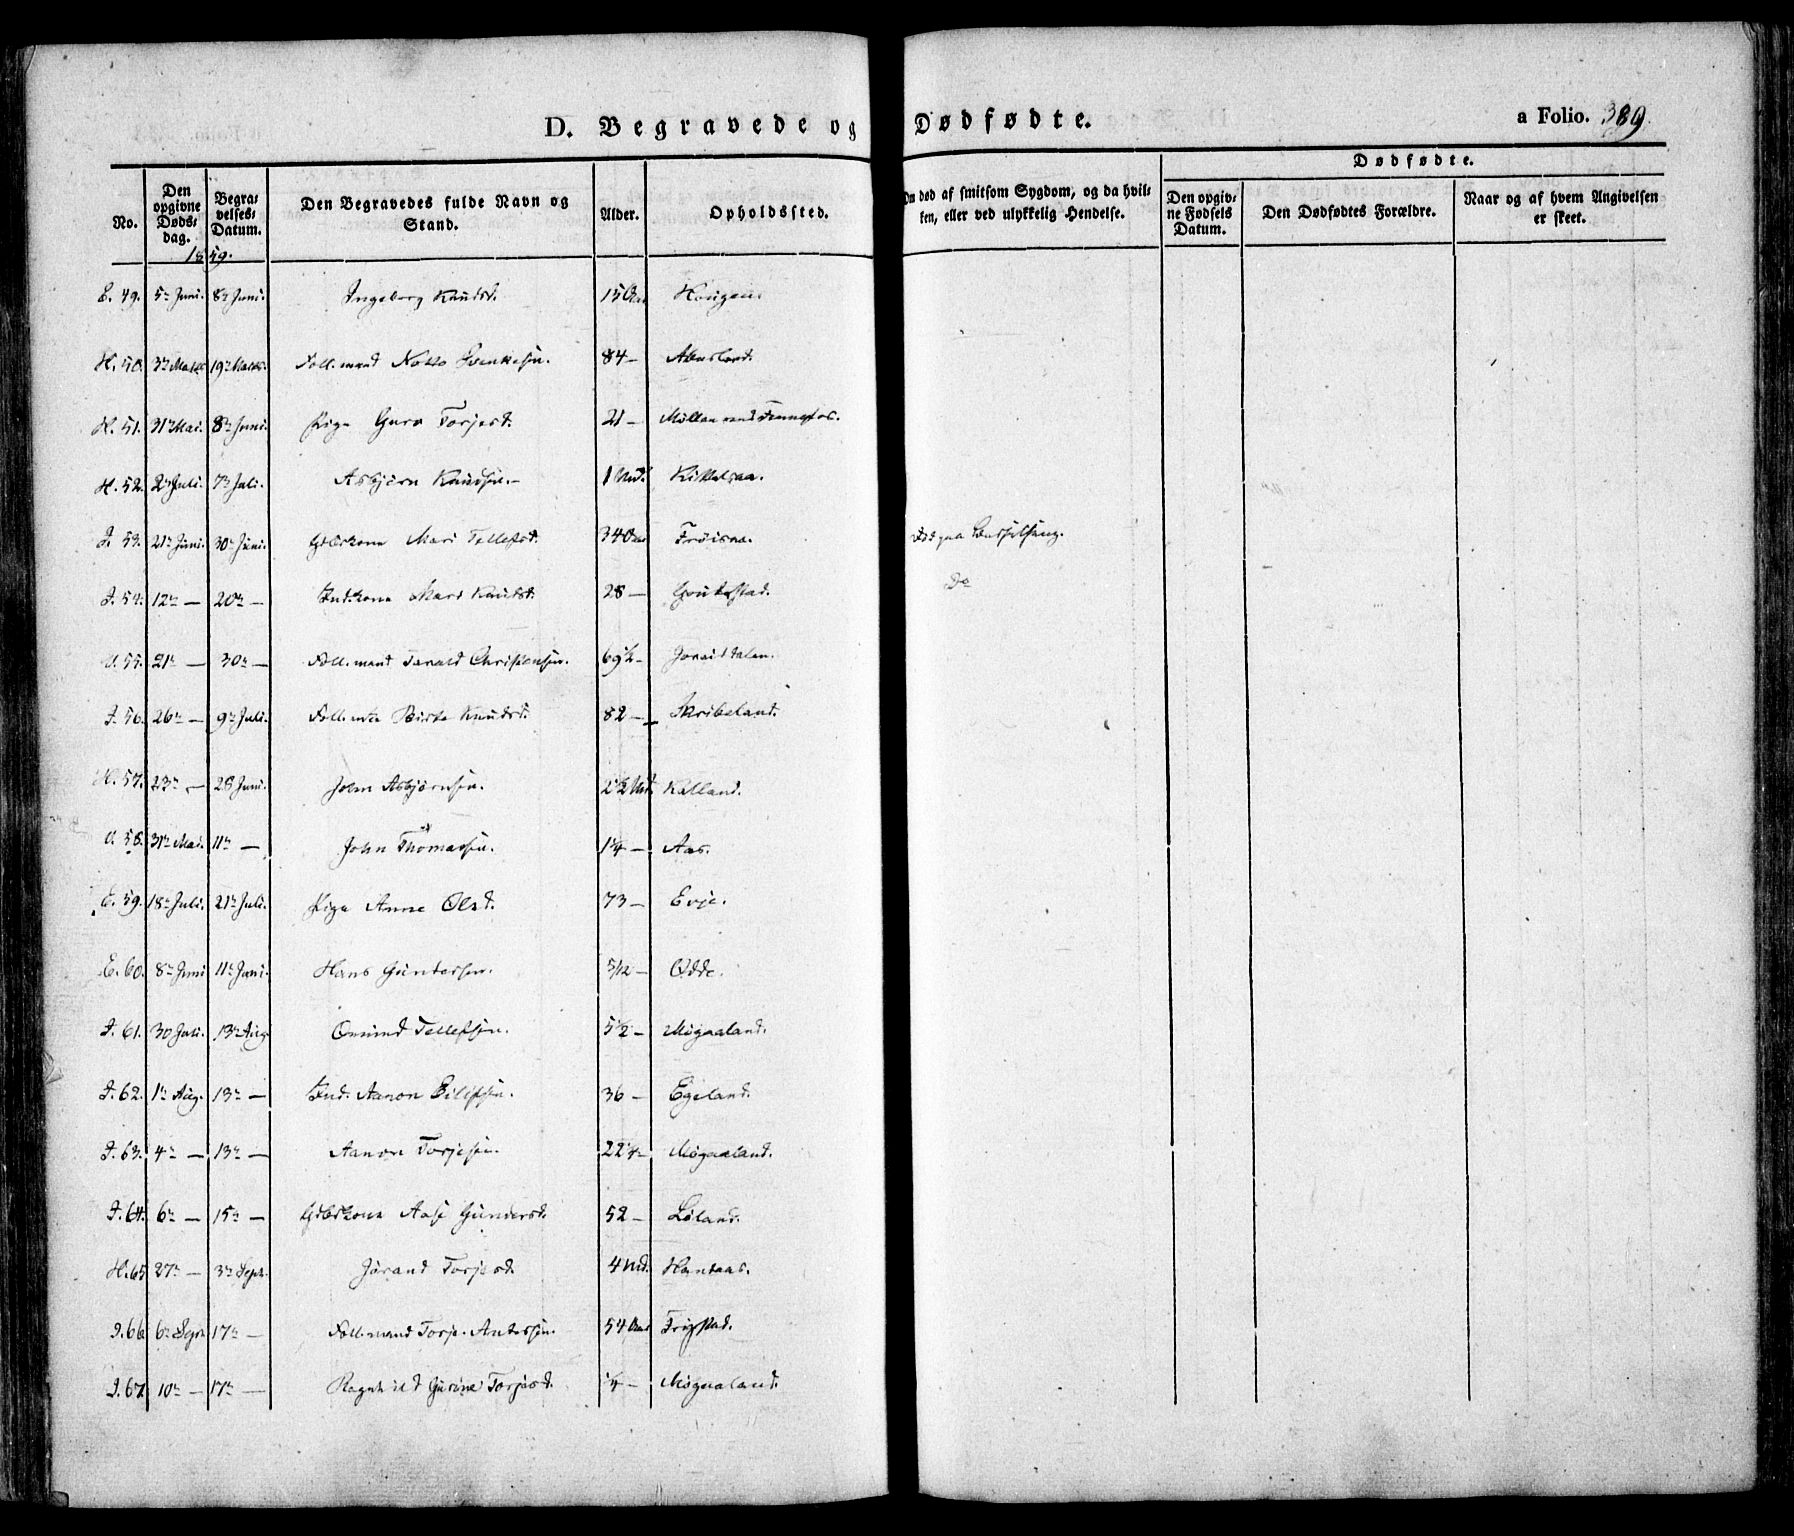 D. Begravede og Dødfødte.
a Folio. 389.
No.
Den opgivne Døds-dag.
Begra-velses-Datum.
Den Begravedes fulde Navn og Stand.
Alder.
Opholdssted.
Om død af smitsom Sygdom, og da hvil-ken, eller ved ulykkelig Hendelse.
Dødfødte.
Den opgiv-ne Fødsels Datum.
Den Dødfødtes Forældre.
Naar og af hvem Angivelsen er skeet.
1859.
E. 49. 5te Juni. 8de Juni. Ingeborg Knudsd. 15 Aar Hougen.
H. 50. 3de 19de Foll.mand 84 — Abusland.
H. 51. 31te Mai. 8de Juni. Pige Guro Torjesd. 21 — Møllen ved Fennefos.
H. 52. 2den Juli. 7de Juli. Asbjørn Knudsen. 1 Md. Kittelsaa.
I. 53. 21te Juni. 30te Juni. Gbrkone Mari Tellefsd. 34 Aar Frøisaa. Død paa Barselseng.
I. 54. 12te — 20de — Ind.kone Mari Knudsd. 28 — Goutestad. Do
55. 21te — 30te — Foll.mand Tarald Christensen. 69½ — Joreiddalen.
I. 56. 26de — 9de Juli. Foll.enke Birte Knudsd. 82 — Skribeland.
H. 57. 23de — 28 Juni. John Asbjørnsen. 2½ Md. Kalland.
58. 31te Mai. 11te — John Thomassen. 1¼ — Aas.
E. 59. 18de Juli. 21de Juli. Pige Anne Olsd. 73 — Evje.
E. 60. 8de Juni 11te Juni. Hans Gundersen. 5/12 — Odde.
I. 61. 30 Juli. 13de Aug. Omund Tellefsen. 5½ — Møgaaland.
I. 62. 1te Aug. 13de — Ind. Aanon Eilefsen. 36 — Egeland.
I. 63. 4de — 13de — Aanon Torjesen. 22¼ — Møgaaland.
I. 64. 6te — 15de — Gbrkone Aase Gundersd. 52 — Løland.
H. 65 27de — 3de Septr. Jørand Torjesd. 4 Md. Hantaas.
I. 66. 6te Septr 17de — Foll.mand Torje Andersen. 54 Aar Frigstad.
I. 67. 10de — 17de — Ragnhild Gurine Torjesd. ¼ — Møgaaland.